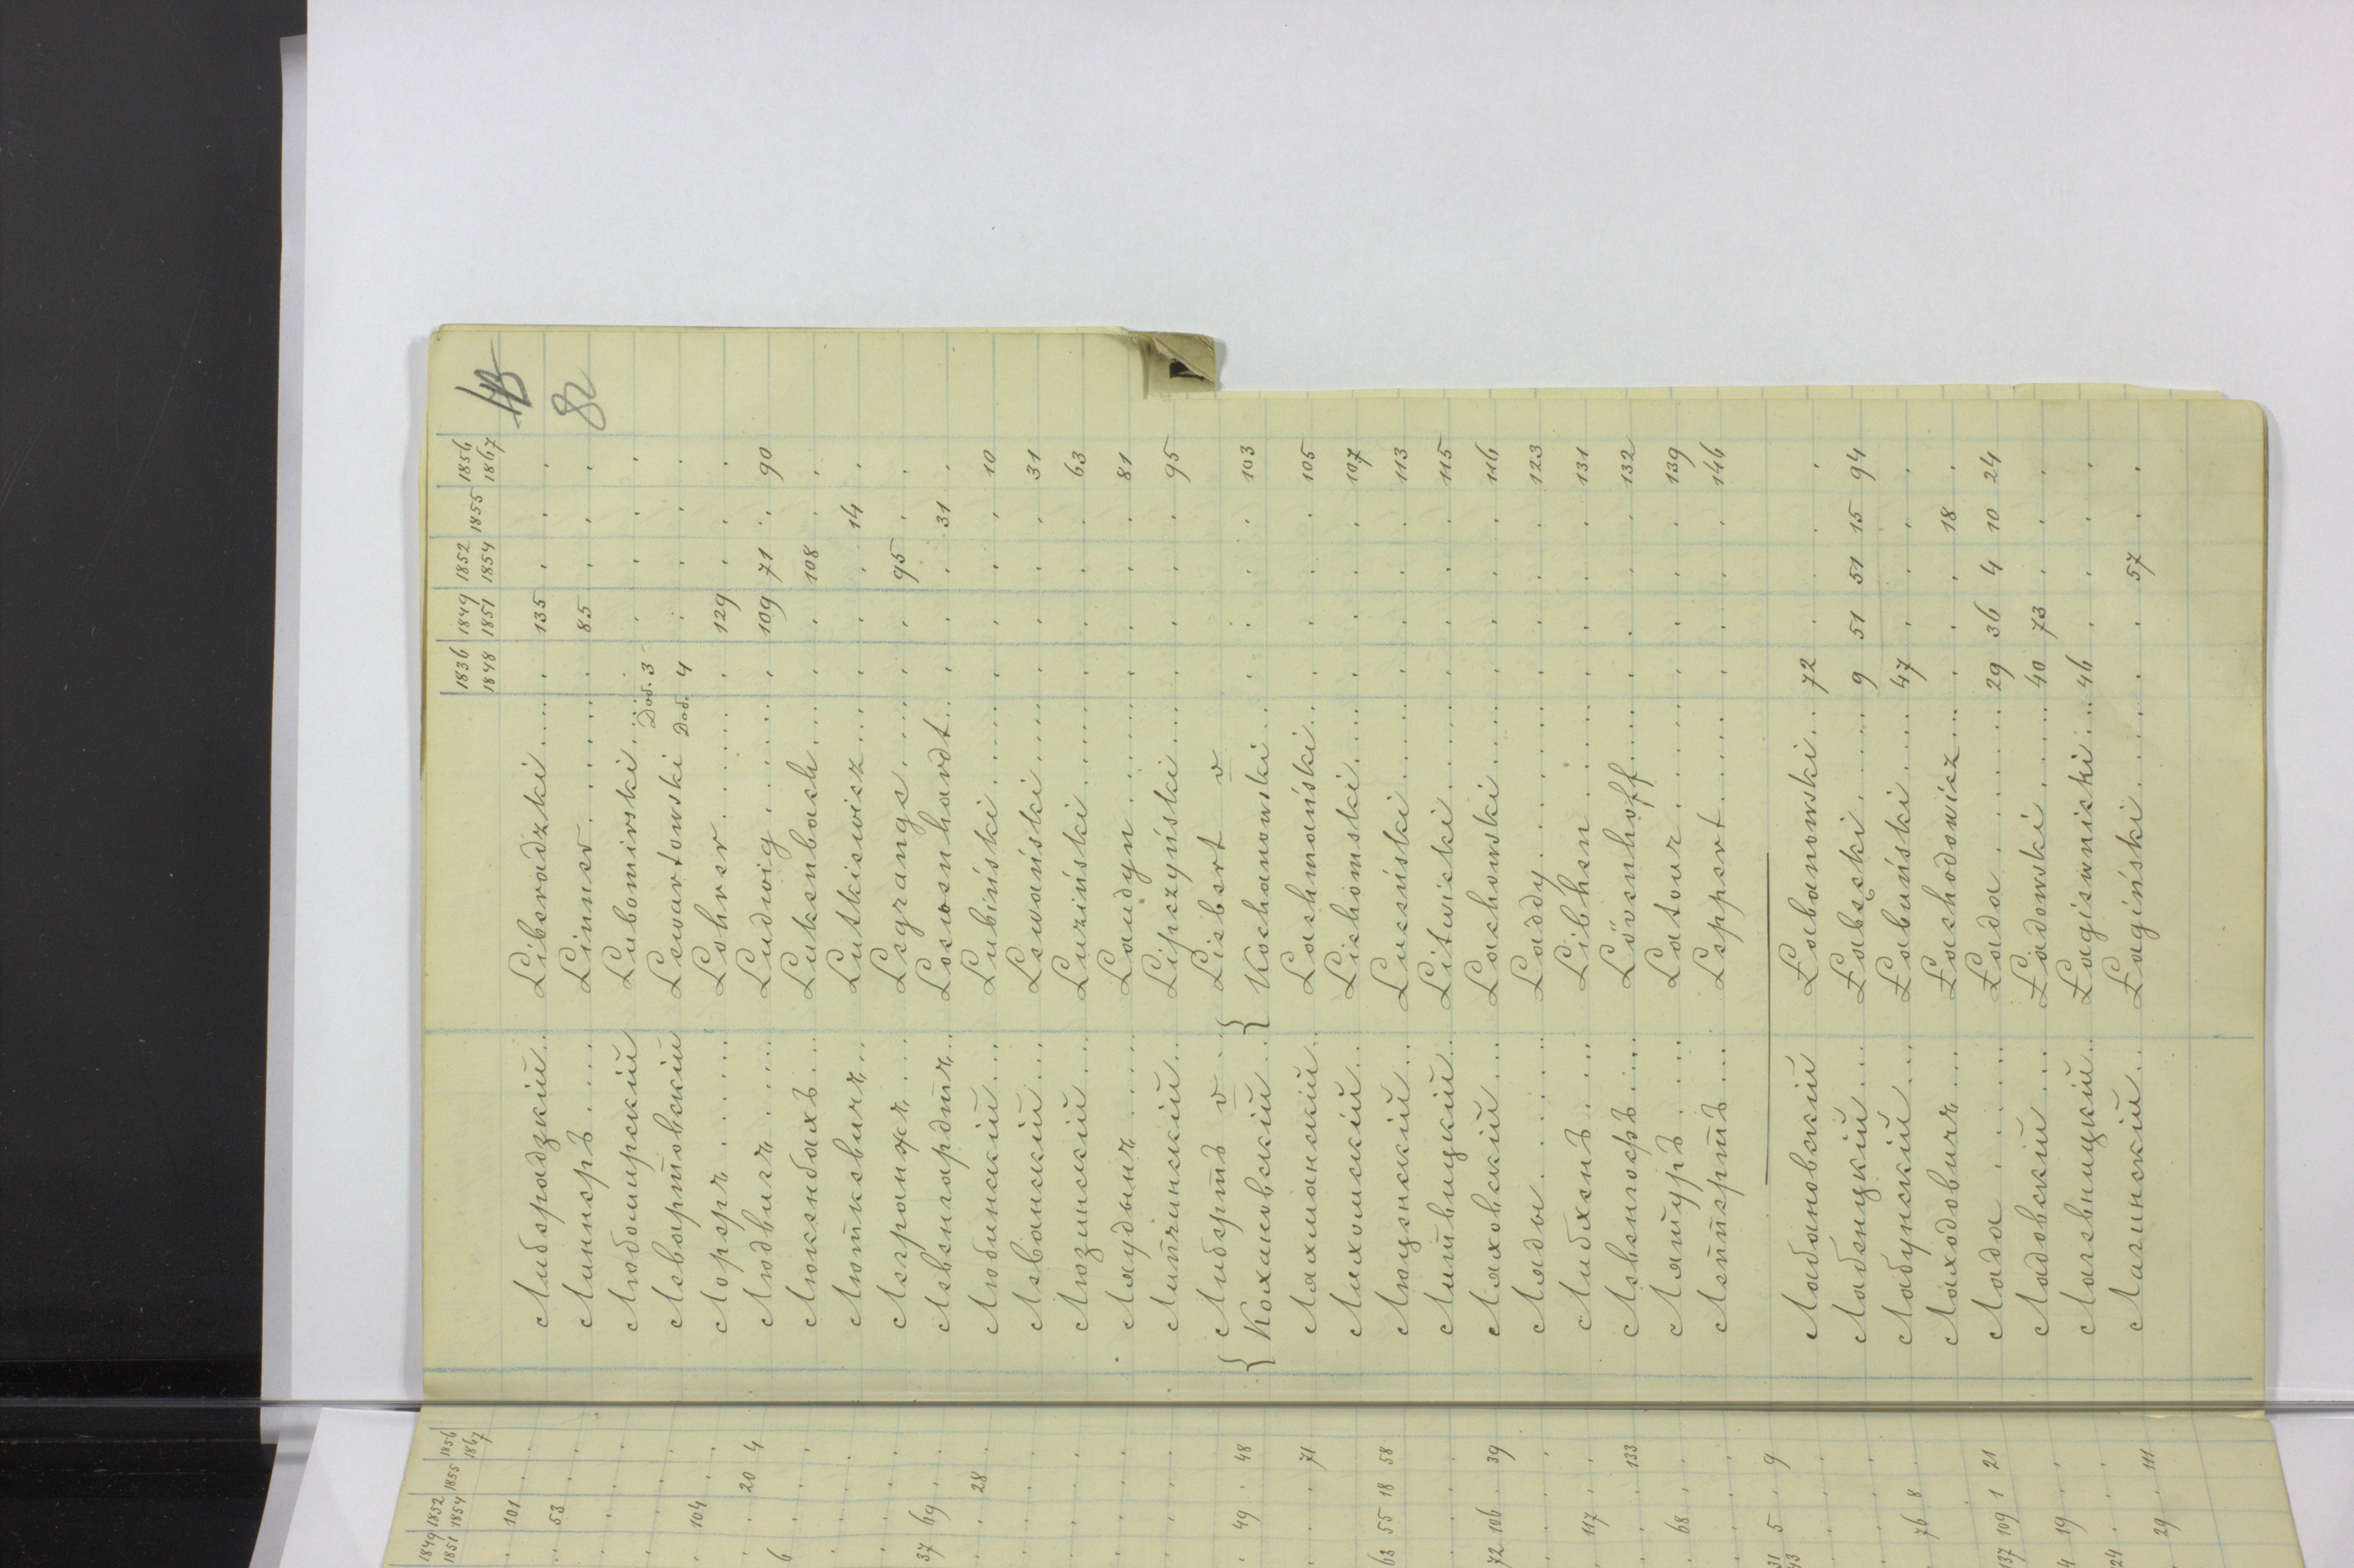 82
1836 1849 1852 1855 1856
1848 1851 1854 1867
Либерадзкій .. Liberadzki .... . 135 . . .
Линнеръ .... Linner ..... . 85 . . .
Любомирскій Lubomirski ... Доб. 3 . . . .
Левартовскій Lewartowski Доб. 4 . . . .
Лореръ ...... Lohrer ..... . 129 . . .
Людвигъ .... Ludwig ..... . 109 71 . 90
Люксенбахъ ... Luksenbach ... . . 108 . .
Люткевичъ ... Lutkiewicz ... . . . 14 .
Легранжъ .... Legrange .... . . 95 . .
Левенгардтъ .. Loewenhardt .. . . . 31 .
Любинскій ... Lubiński .... . . . . 10
Леванскій ... Lewański .... . . . . 31
Люзинскій ... Luziński .... . . . . 63
Лаудынъ .... Laudyn ..... . . . . 81
Липчинскій .. Lipczyński ... . . . . 95
{ Либертъ v ... { Libert v
Кохановскій .. Kochanowski .. . . . . 103
Лахманскій .. Lachmański .. . . . . 105
Лихомскій .. Lichomski .... . . . . 107
Люценскій ... Luceński .... . . . . 113
Литвицкій .. Litwicki ..... . . . . 115
Ляховскій ... Lachowski .... . . . . 116
Ляды ..... Laddy ..... . . . . 123
Либхенъ .... Libhen ..... . . . . 131
Левенгофъ .... Lövenhoff .... . . . . 132
Лятуръ .... Latour ..... . . . . 139
Леппертъ ... Leppert ..... . . . . 146
Лабановскій Łabanowski .. 72 . . . .
Лабенцкій ... Łabęcki .... 9 51 51 15 94
Лабунскій ... Łabuński .... 47 . . . .
Лаходовичъ ... Łachodowicz ... . . . 18 .
Лада ..... Łada ...... 29 36 4 10 24
Ладовскій ... Ładowski .... 40 73 . . .
Лагевницкій .. Łagiewnicki .. 46 . . . .
Лагинскій .. Łagiński .... . . 57 . .
1849 1852 1855 1856
1851 1854 1867
. 101 . .
. 53 . .
. 104 . .
. . 20 4
6 . . .
37 69 . .
. . 28 .
. 49 . 48
. . . 71
63 55 18 58
72 106 . 39
. 117 . .
. . . 133
. 68 . .
31 5 . 9
43
76 8 .
137 109 1 21
4 19 . .
24 . . .
29 . 111